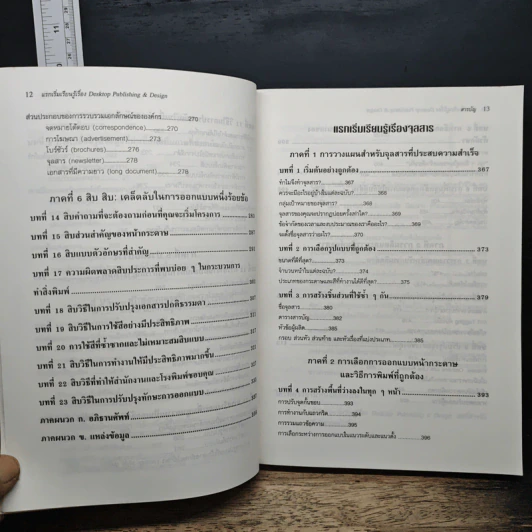 12 แรกเริ่มเรียนรู้เรื่อง Desktop Publishing & Design
ส่วนประกอบของการรวบรวมเอกลักษณ์ขององค์กร 270
จดหมายโต้ตอบ (correspondence) 270
การโฆษณา (advertisement) 273
โบร์ชัวร์ (brochures) 276
จุลสาร (newsletter) 278
เอกสารที่มีความยาว (long document) 278
ภาคที่ 6 สิบ สิบ: เคล็ดลับในการออกแบบหนึ่งร้อยข้อ
บทที่ 14 สิบคำถามที่จะต้องถามก่อนที่คุณจะเริ่มโครงการ
บทที่ 15 สิบส่วนสำคัญของหน้ากระดาษ
บทที่ 16 สิบแบบตัวอักษรที่สำคัญ
บทที่ 17 ความผิดพลาดสิบประการที่พบบ่อย ๆ ในกระบวนการ
ทำสิ่งพิมพ์
บทที่ 18 สิบวิธีในการปรับปรุงเอกสารปกติธรรมดา
บทที่ 19 สิบวิธีในการใช้สีอย่างมีประสิทธิภาพ
บทที่ 20 การใช้สีที่ซ้ำซากและไม่เหมาะสมสิบแบบ
บทที่ 21 สิบวิธีในการทำงานให้มีประสิทธิภาพมากขึ้น
บทที่ 22 สิบวิธีที่ทำให้สำนักงานและโรงพิมพ์ชอบคุณ
บทที่ 23 สิบวิธีในการปรับปรุงทักษะการออกแบบ
ภาคผนวก ก. อภิธานศัพท์
ภาคผนวก ข. แหล่งข้อมูล
สารบัญ 13
แรกเริ่มเรียนรู้เรื่องจุลสาร
ภาคที่ 1 การวางแผนสำหรับจุลสารที่ประสบความสำเร็จ
บทที่ 1 เริ่มต้นอย่างถูกต้อง 367
ทำไมจึงทำจุลสาร? 367
ควรจะมีอะไรอยู่บ้างในแต่ละฉบับ? 368
กลุ่มเป้าหมายของจุลสาร? 368
จุลสารของคุณจะปรากฏบ่อยครั้งเท่าใด? 369
ข้อจำกัดของเวลาและงบประมาณของเราคืออะไร? 369
จะตั้งชื่อจุลสารว่าอะไร? 370
บทที่ 2 การเลือกรูปแบบที่ถูกต้อง 373
ขนาดที่ดีที่สุด? 373
จำนวนหน้าในแต่ละฉบับ? 374
ประเภทของกระดาษและสีที่ทำงานได้ดีที่สุด? 375
บทที่ 3 การสร้างชิ้นส่วนที่ใช้ซ้ำ ๆ กัน 379
ชื่อจุลสาร 380
ตารางสารบัญ 382
หัวข้อผู้ผลิต 385
กรอบ ส่วนหัว ส่วนท้าย และหัวเรื่องที่แบ่งประเภท 385
ภาคที่ 2 การเลือกการออกแบบหน้ากระดาษ
และวิธีการพิมพ์ที่ถูกต้อง
บทที่ 4 การสร้างพื้นที่ว่างลงในทุก ๆ หน้า 393
การปรับจุดกั้นขอบ 393
การทำงานกับแถวกริด 394
การรวมแถวข้อความ 395
การเลือกระหว่างการออกแบบในแนวระดับและแนวตั้ง 396